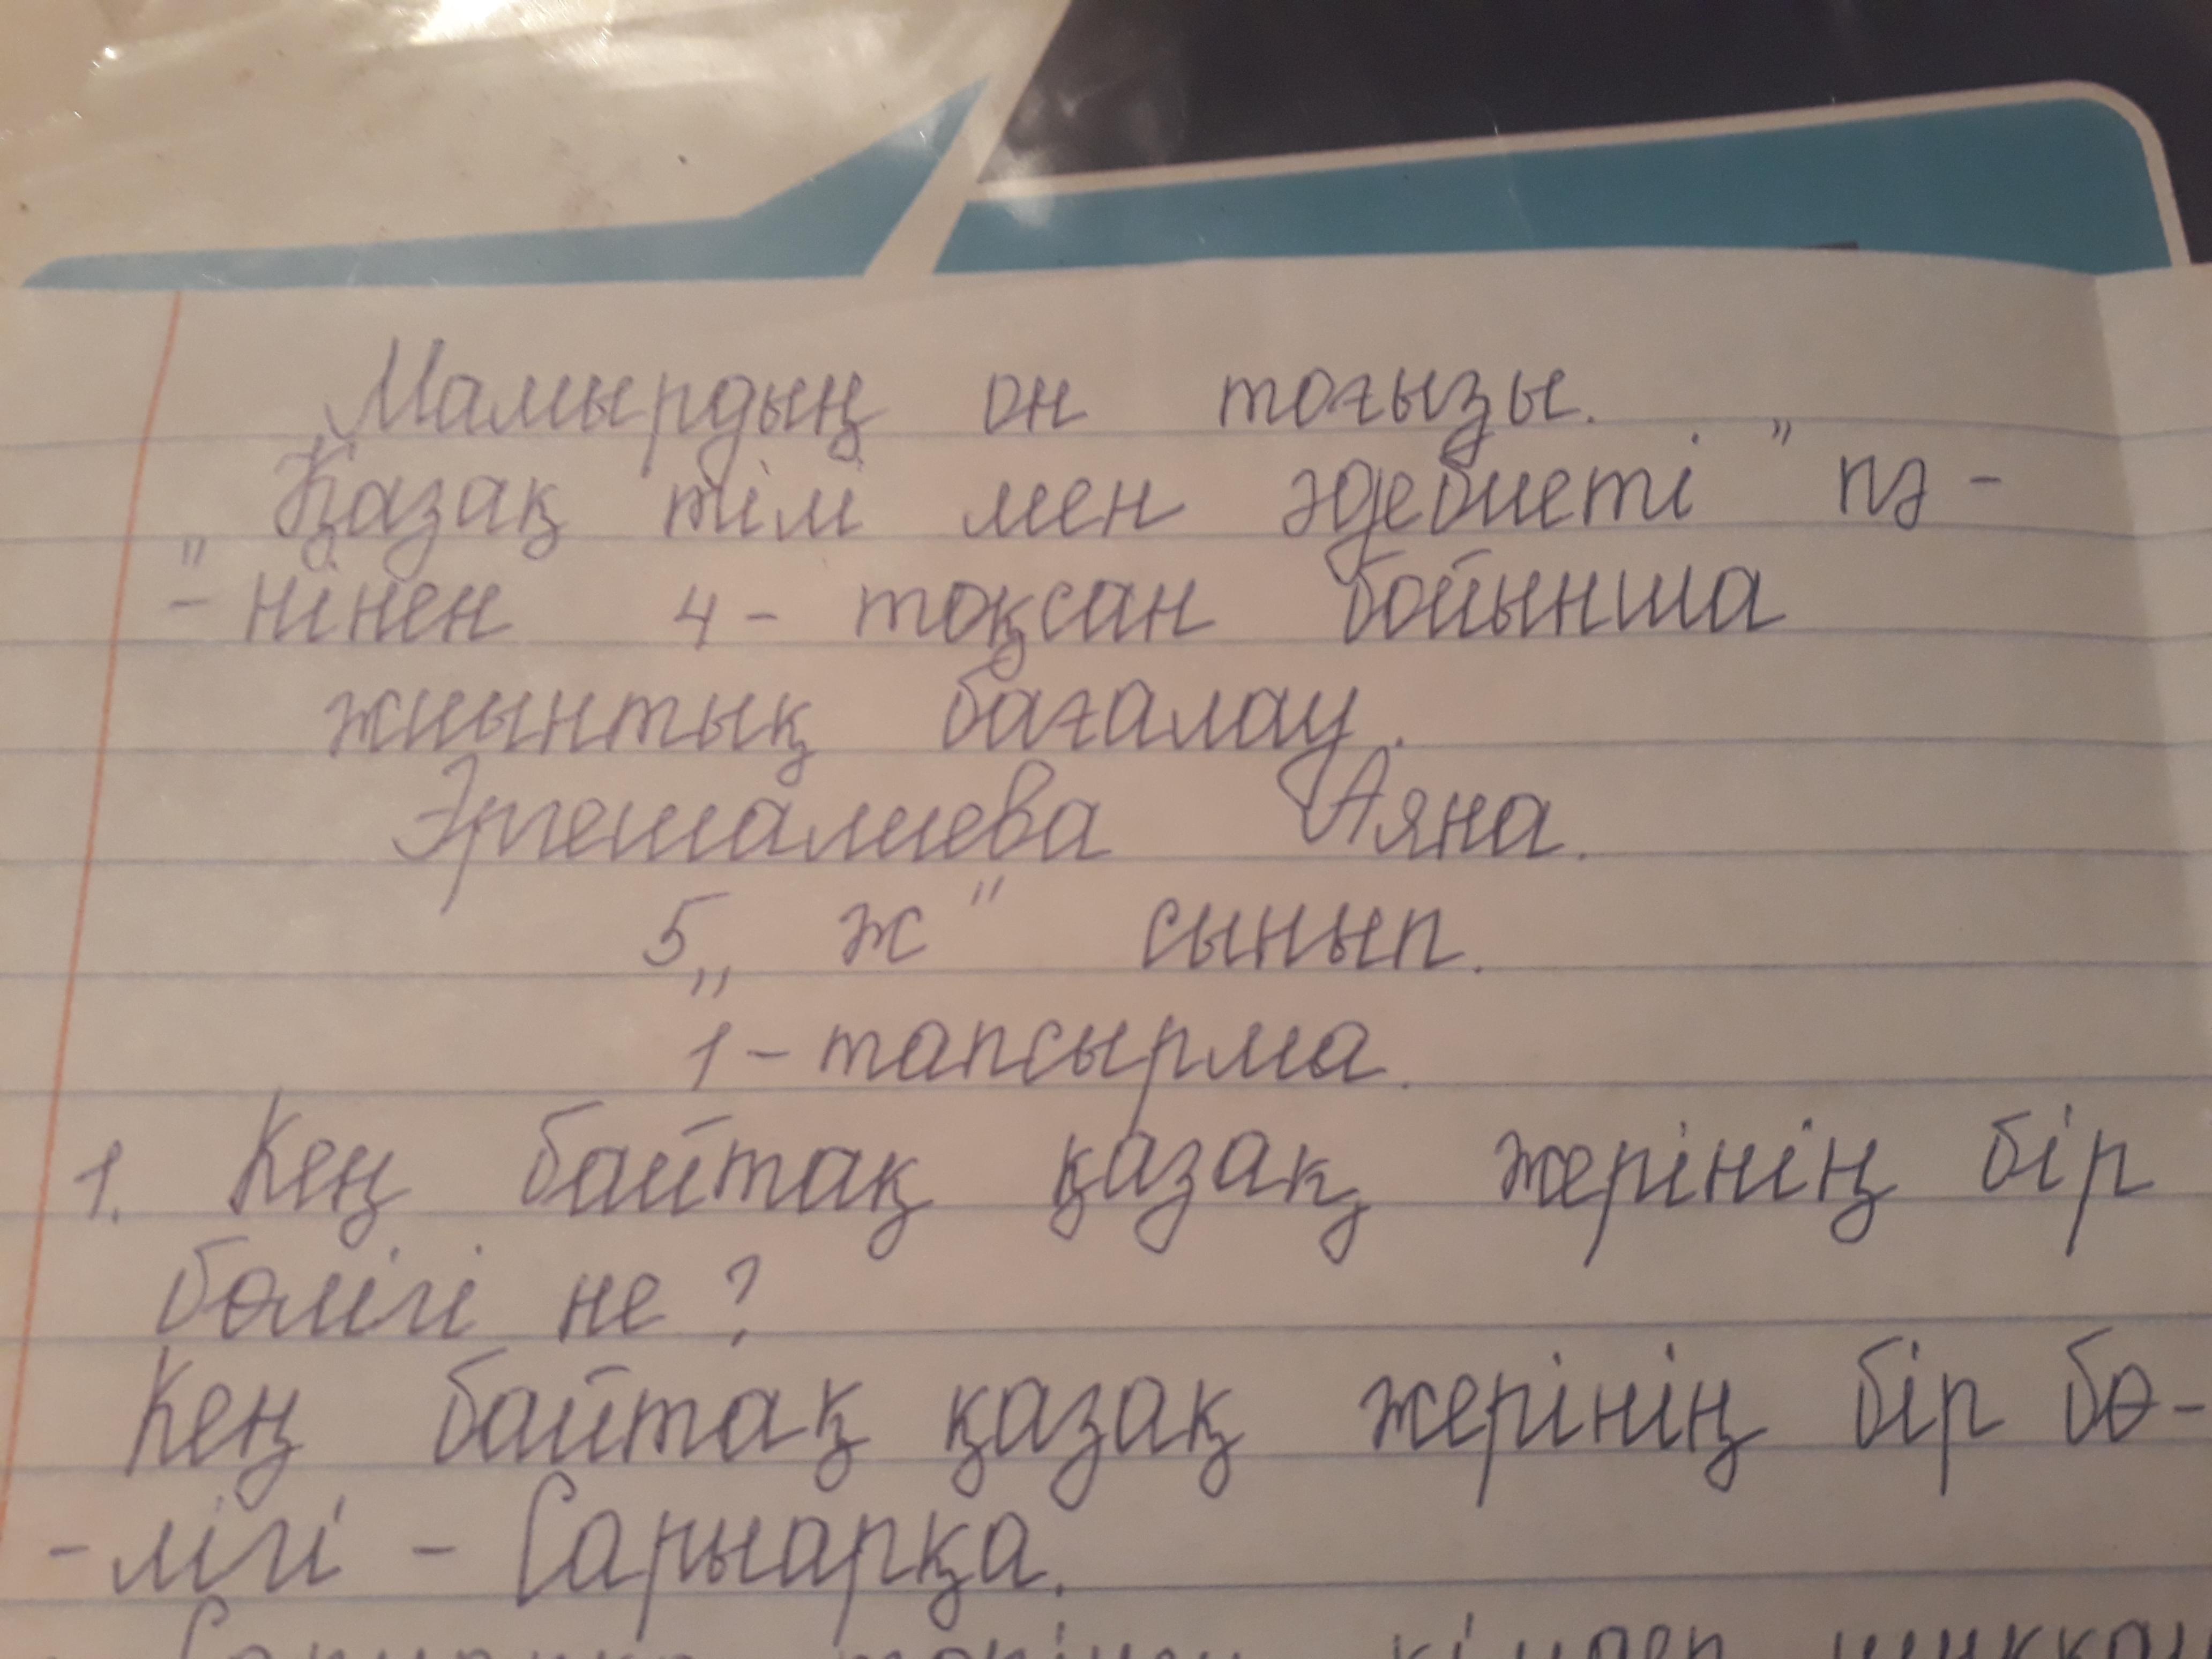 Мамырдың он тоғызы.
„Қазақ тілі мен әдебиеті" пә-
-нінен 4- тоқсан бойынша
жиынтық бағалау.
Эргешалиева Аяна.
5 „ж" сынып.
1-тапсырма.
1. Кең байтақ қазақ жерінің бір
бөлігі не?
Кең байтақ қазақ жерінің бір бө-
-лігі - Сарыарқа.